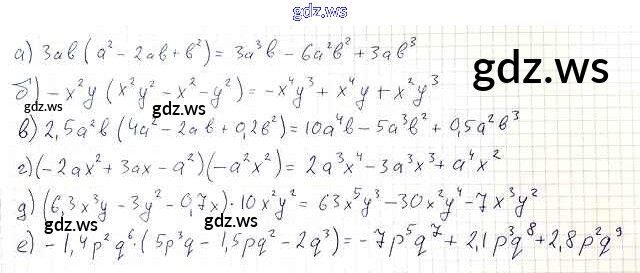 gdz.ws
а) 3ab(a² - 2ab + b²) = 3a³b - 6a²b² + 3ab³
gdz.ws
б) -x²y(x²y² - x² - y²) = -x⁴y³ + x⁴y + x²y³
gdz.ws
в) 2,5a²b(4a² - 2ab + 0,2b²) = 10a⁴b - 5a³b² + 0,5a²b³
gdz.ws
г) (-2ax² + 3ax - a²)(-a²x²) = 2a³x⁴ - 3a³x³ + a⁴x²
д) (6,3x³y - 3y² - 0,7x)·10x²y² = 63x⁵y³ - 30x²y⁴ - 7x³y²
gdz.ws
gdz.ws
е) -1,4p²q⁶·(5p³q - 1,5pq² - 2q³) = -7p⁵q⁷ + 2,1p³q⁸ + 2,8p²q⁹